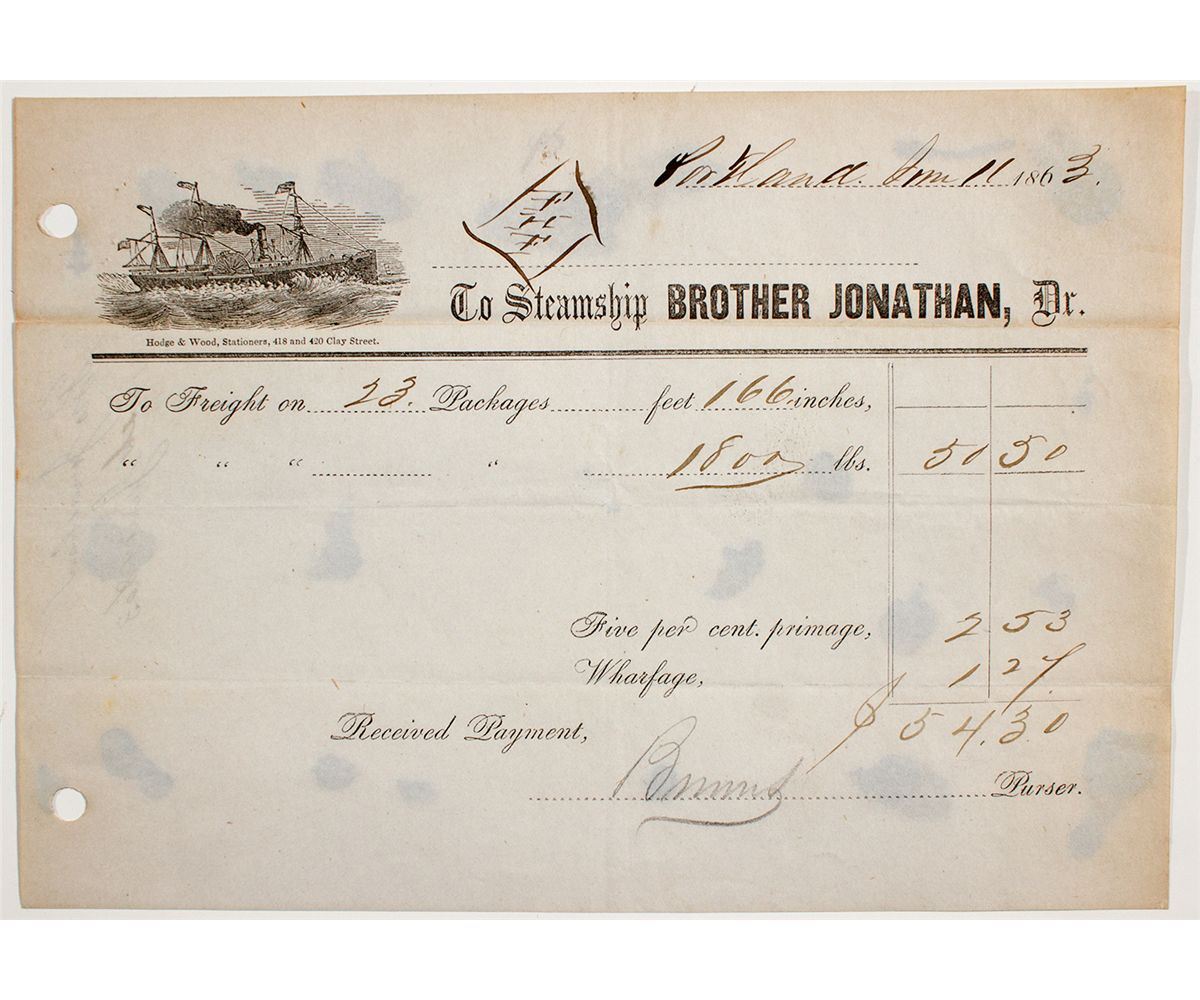 Portland. 11 1863.
To Steamship BROTHER JONATHAN, Dr.
Hodge & Wood, Stationers, 418 and 420 Clay Street.
To Freight on 23. Packages feet 166 inches,
" " " " 1800 lbs. 50 50
Five per cent. primage, 2 53
Wharfage, 1 27
$54.30
Received Payment,
Purser.